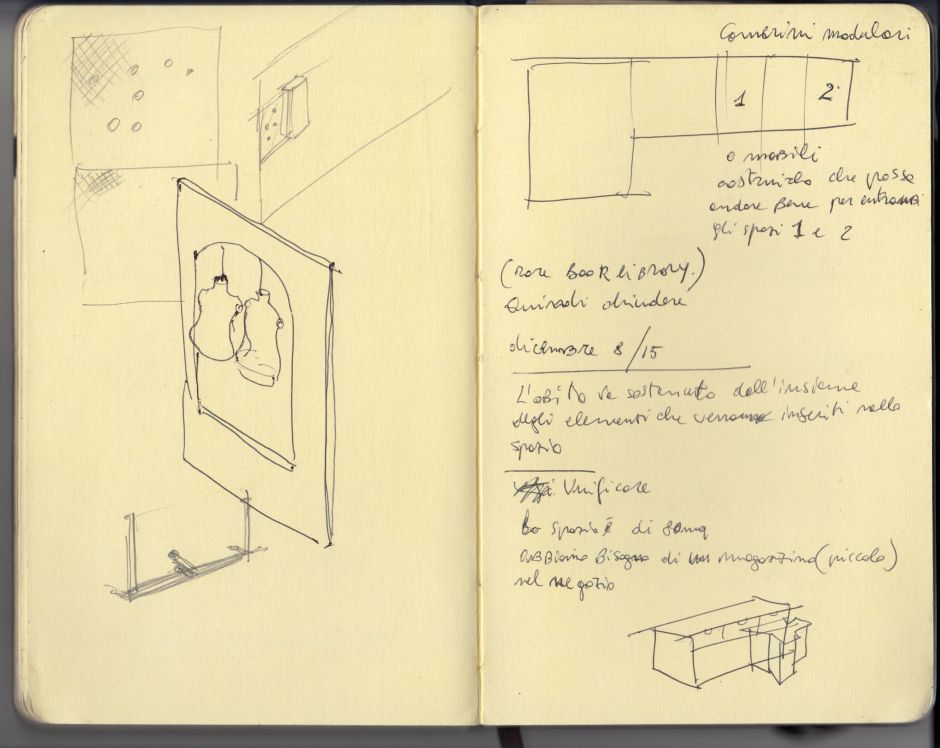 Camerini modulari
1
2
o mobili
costruirlo che possa
andare bene per entrambi
gli spazi 1 e 2
(rare Book library.)
Quindi chiudere
dicembre 8/15
L'abito va sostenuto dall'insieme
degli elementi che verranno inseriti nello
spazio
Verificare
Lo spazio è di 80mq
abbiamo bisogno di un magazzino (piccolo)
nel negozio